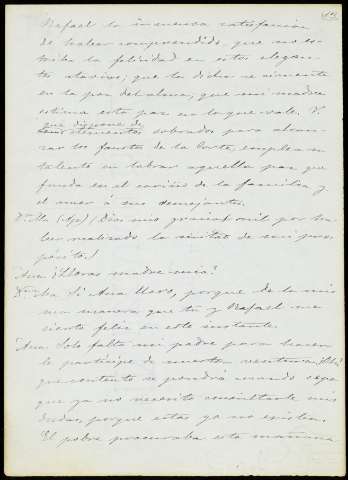 Rafael la inmensa satisfacción
de haber comprendido que no es-
triba la felicidad en estos elegan-
tes atavios; que la dicha se cimenta
en la paz del alma; que mi madre
estima esta paz en lo que vale. V.
que dispone de
elementos sobrados para alcan-
zar los faustos de la Corte, emplea su
talento en labrar aquella paz que
funda en el cariño de la familia y
el amor á sus semejantes.
D.ª Ma (Ap) (Dios mio gracias mil por ha-
ber realizado la mitad de mi pro-
pósito.)
Ana ¿Lloras madre mia?
D.ª Ma Si Ana lloro, porque de la mis-
ma manera que tu y Rafael me
siento feliz en este instante.
Ana Solo falta mi padre para hacer-
le participe de nuestra ventura. ¡Oh!
que contento se pondrá cuando sepa
que ya no necesito consultarle mis
dudas, porque estas ya no existen.
El pobre procuraba esta mañana